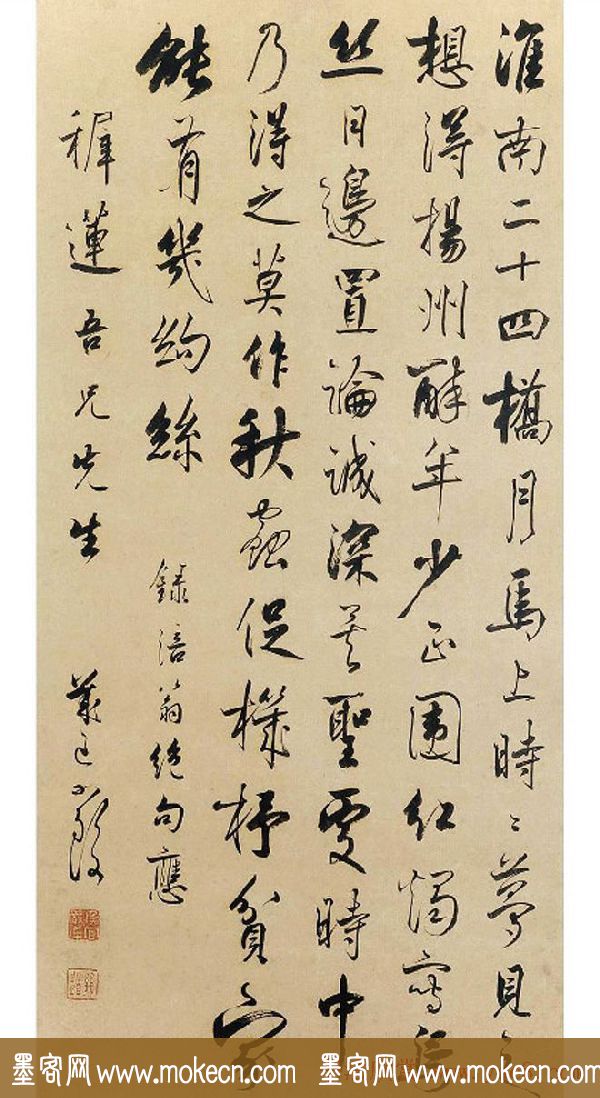 淮南二十四橋月馬上時〻夢見之
想得揚州醉年少正圍紅燭寫烏
丝日邊置論誠深矣聖處時中
乃得之莫作秋蟲促機杼貧家
能有幾絇絲
錄涪翁絕句應
穉蓮吾兄先生
墨客网 www.mokecn.com 墨客网 www.mokecn.com